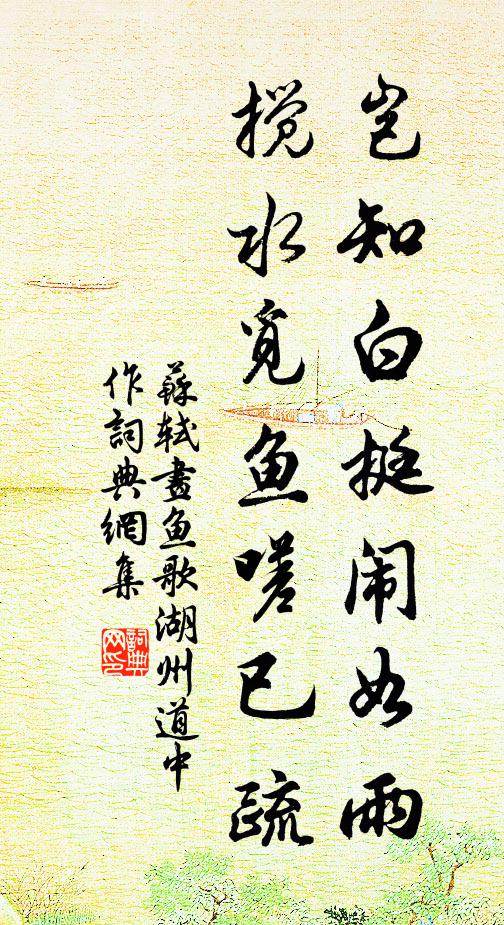 岂知白挺闹如雨
搅水觅鱼嗟已疏
蘇軾畫鱼歌湖州道中
作詞典網集
詞典
网印